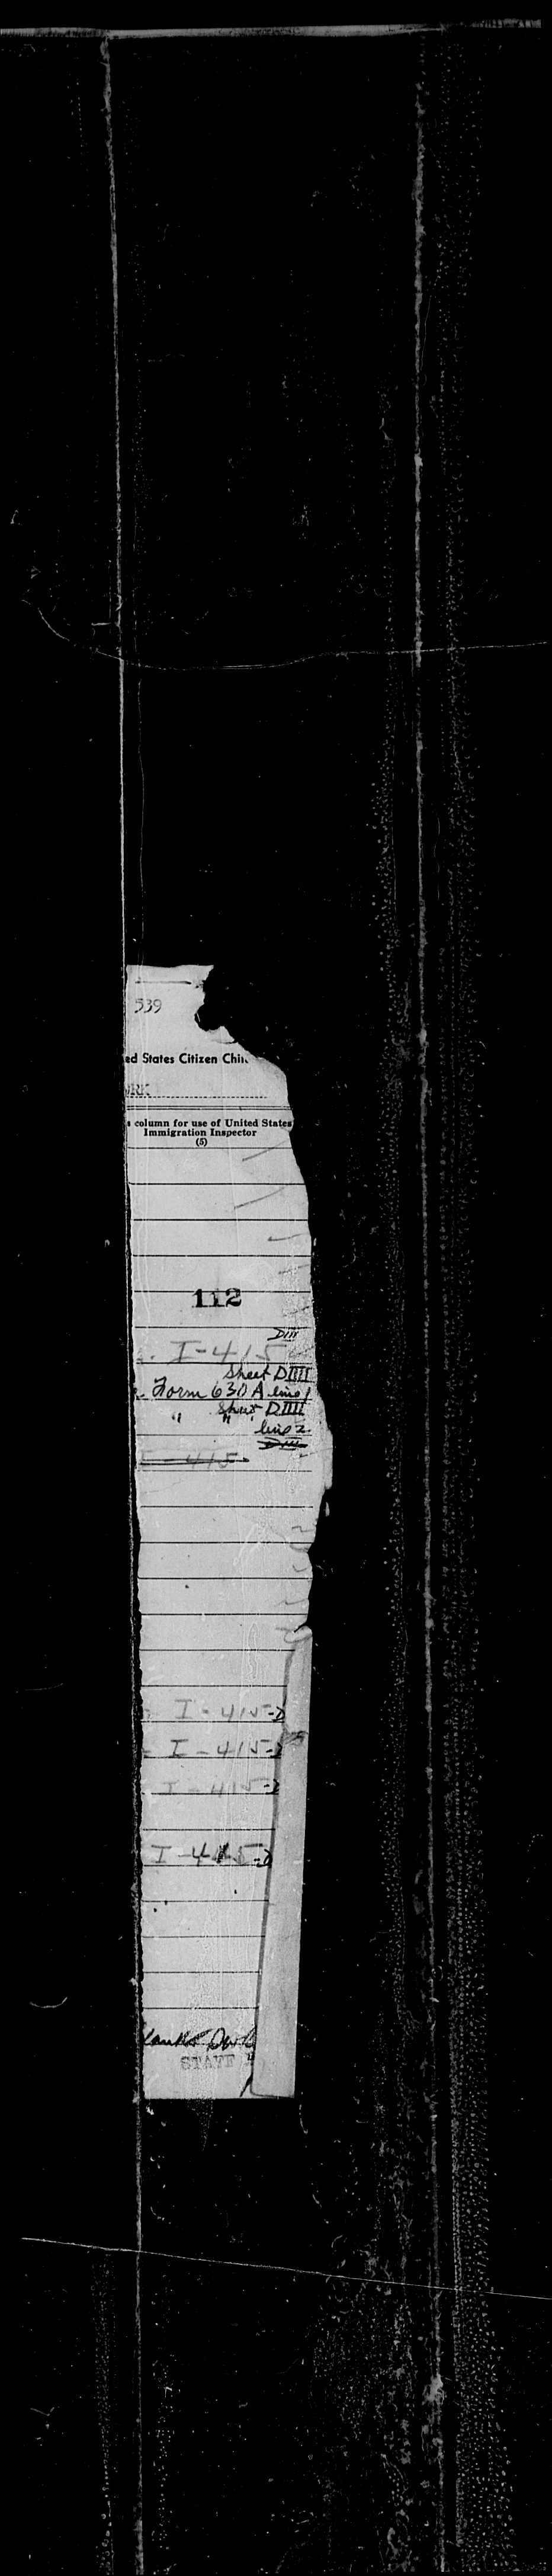 539
ed States Citizen Chil
ORK
s column for use of United States
Immigration Inspector
(5)
112
DIII
I-415
Sheet DIIII
Form 630 A line 1
" " Sheet DIIII
line 2
DIII
I-415
I-415-D
I-415-D
I-415-D
I-415-D
STAFF